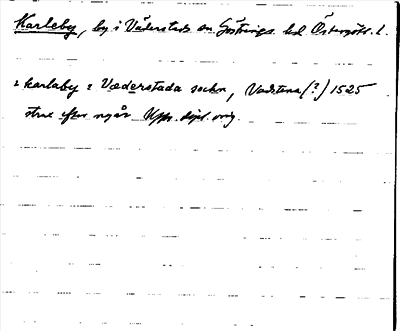 Karleby, by i Väderstads sn Göstrings hd Östergötl. l.
i karlaby i Vœderstada sockn, Vadstena (?) 1525
strax efter nyår Upps. dipl. orig.